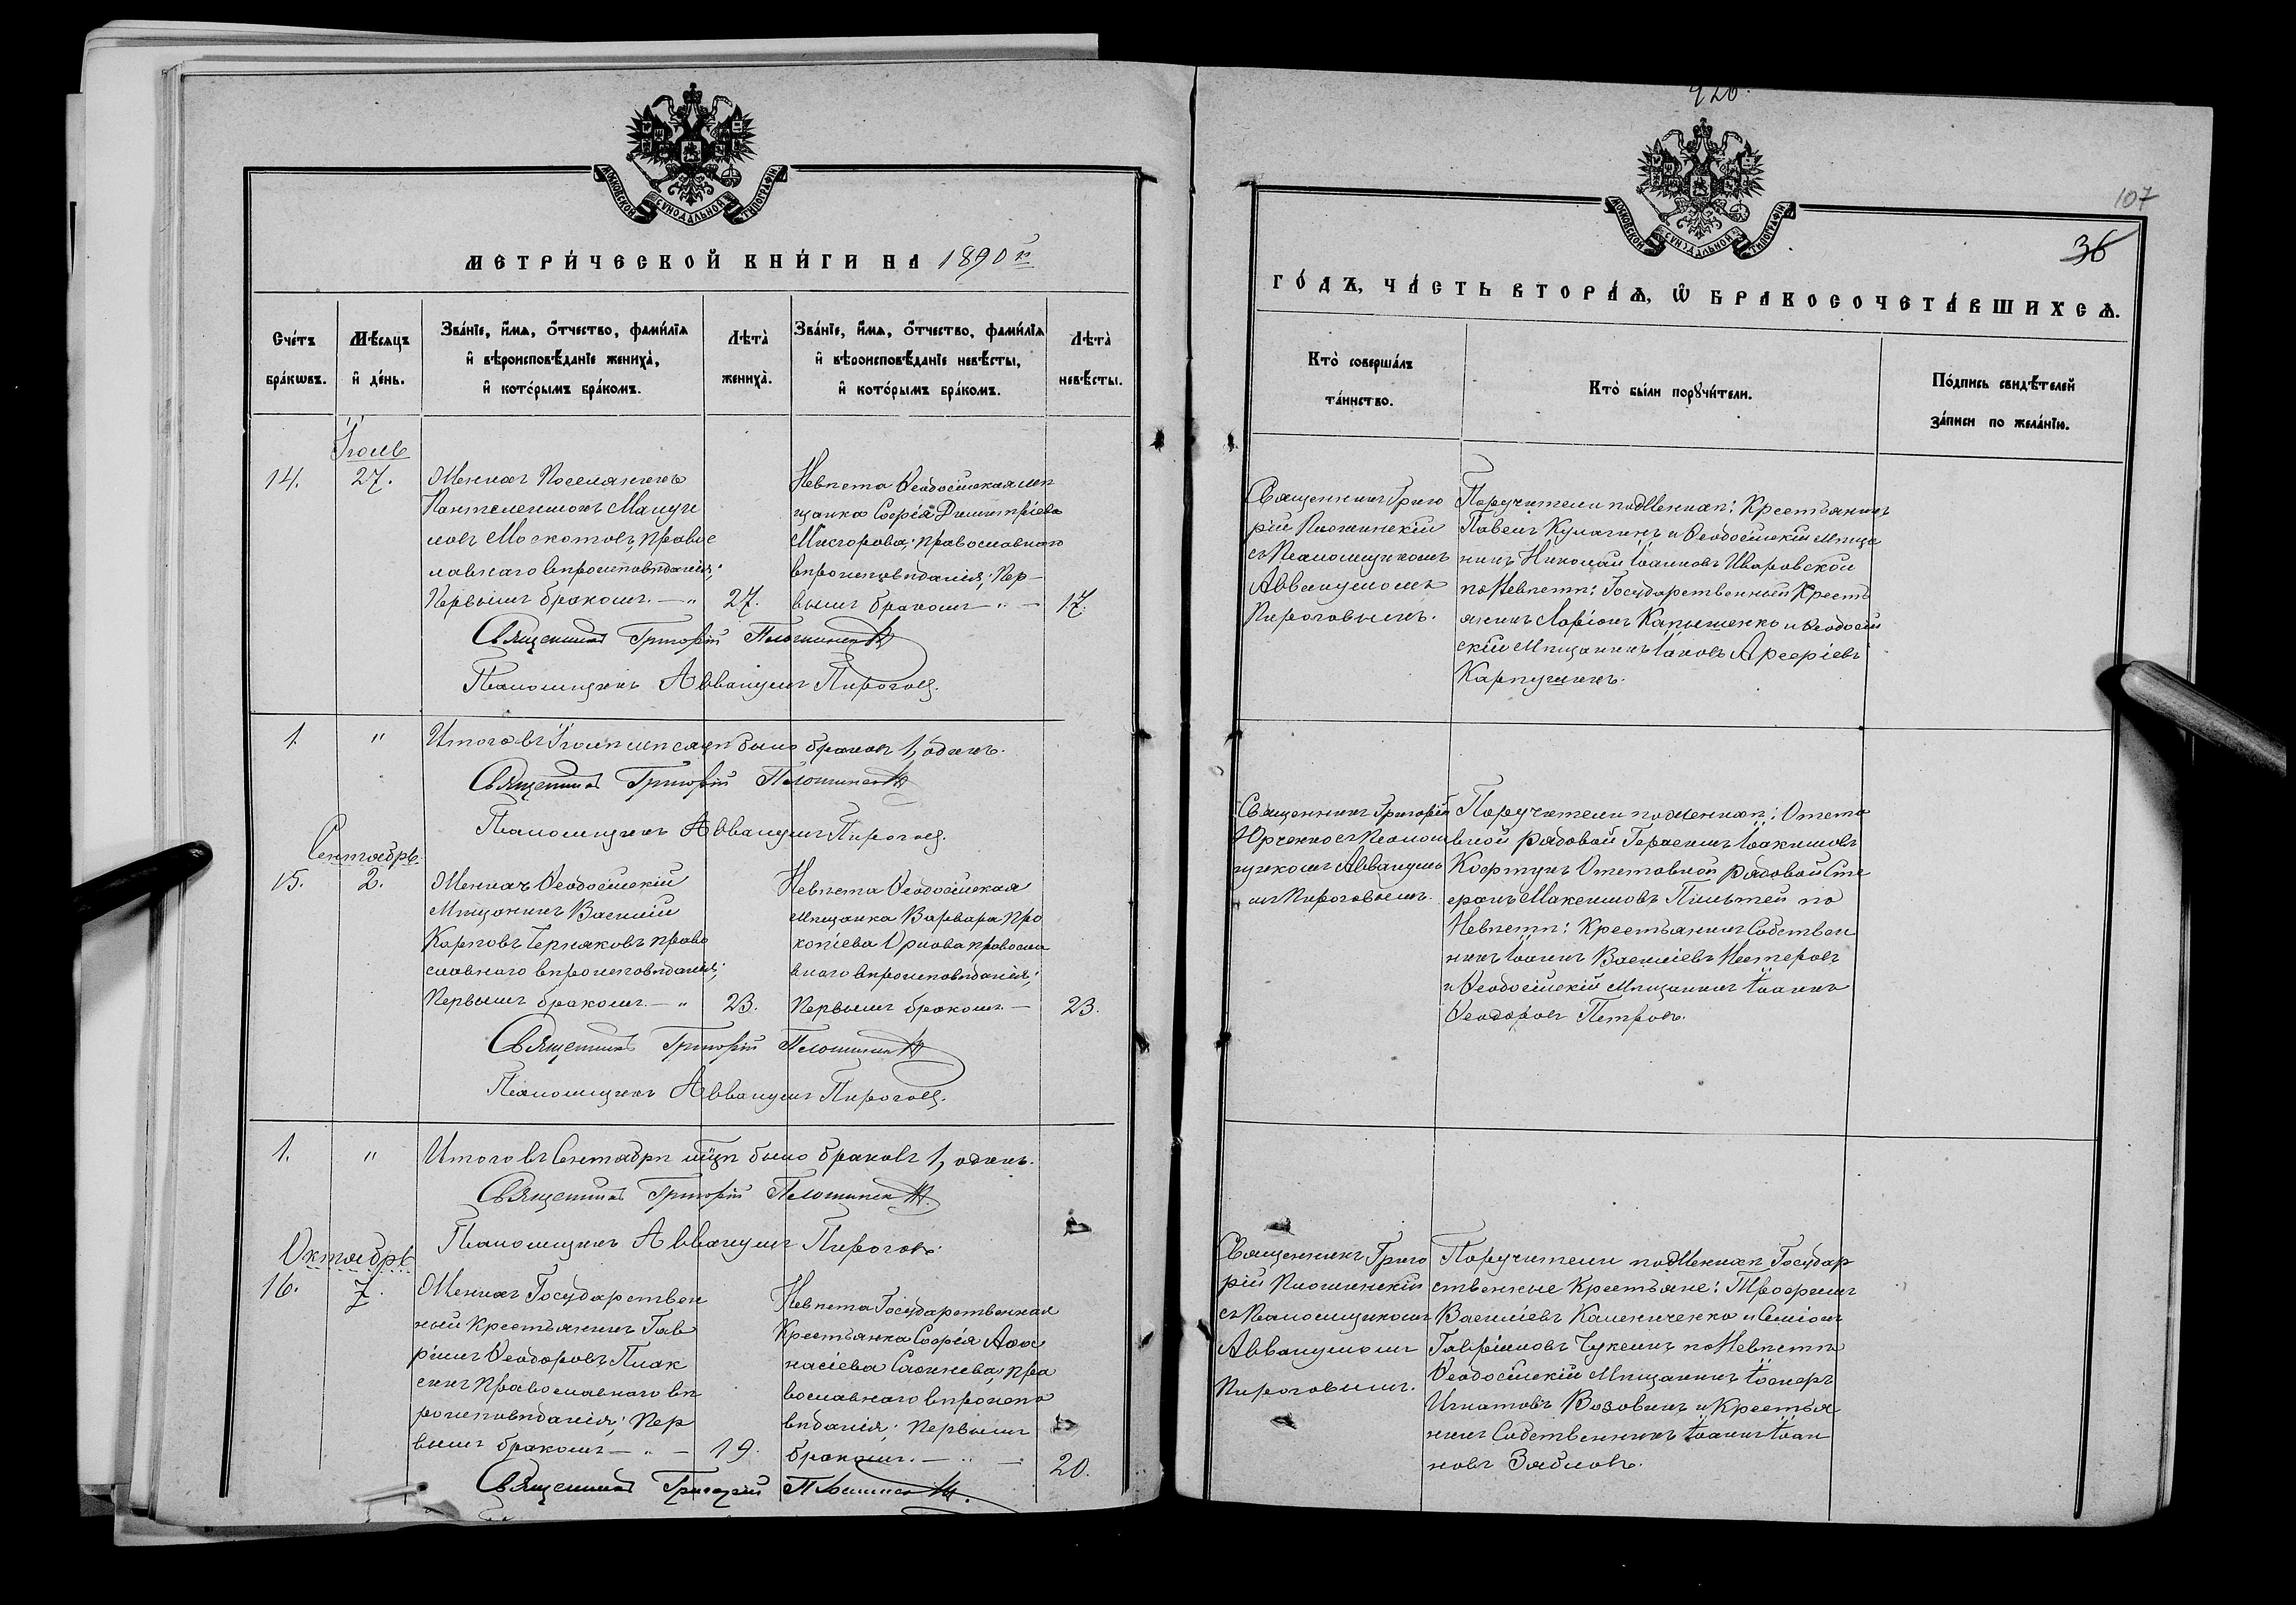 МОСКОВСКОЙ СУНОДАЛЬНОЙ ТИПОГРАФІИ
МЕТРИ́ЧЕСКОЙ КНИ́ГИ НА 1890й
Сче́тъ бра́кѡвъ.
Мѣ́сяцъ и де́нь.
Зва́нїе, и҆́мѧ, ѻ҆́тчество, фами́лїѧ
и҆ вѣроисповѣ́данїе жениха̀,
и҆ кото́рымъ бра́комъ.
Лѣта̀ жениха̀.
Зва́нїе, и҆́мѧ, ѻ҆́тчество, фами́лїѧ
и҆ вѣроисповѣ́данїе невѣ́сты,
и҆ кото́рымъ бра́комъ.
Лѣта̀ невѣ́сты.
Іюль
14.
27.
Женихъ Поселянинъ
Пантелеимонъ Мануи
ловъ Москотовъ, правос
лавнаго вѣроисповѣданія;
Первымъ бракомъ. — "
27.
Невѣста Ѳеодосійская мѣ
щанка Софія Димитріева
Мисторова; православнаго
вѣроисповѣданія; Пер-
вымъ бракомъ — " —
17.
Священникъ Григорій
Псаломщикъ Аввакумъ Пироговъ.
1.
"
Итого въ Іюлѣ мѣсяцѣ было браковъ 1, одинъ.
Священникъ Григорій
Псаломщикъ Аввакумъ Пироговъ.
Сентябрь.
15.
2.
Женихъ Ѳеодосійскій
Мѣщанинъ Василій
Карповъ Черняковъ право
славнаго вѣроисповѣданія;
Первымъ бракомъ. — "
23.
Невѣста Ѳеодосійская
мѣщанка Варвара Про
копіева Орлова правосла
внаго вѣроисповѣданія;
Первымъ бракомъ. —
23.
Священникъ Григорій
Псаломщикъ Аввакумъ Пироговъ.
1.
"
Итого въ Сентябрѣ мцѣ было браковъ 1, одинъ.
Священникъ Григорій
Псаломщикъ Аввакумъ Пироговъ.
Октябрь
16.
7.
Женихъ Государствен
ный Крестьянинъ Гав
ріилъ Ѳеодоровъ Плак
синъ Православнаго вѣ
роисповѣданія; Пер
вымъ бракомъ — " —
19.
Невѣста Государственная
Крестьянка Софія Аѳа
насіева Сланнева, пра
вославнаго вѣроиспо
вѣданія; Первымъ
бракомъ. — " —
20.
Священникъ Григорій
926.
107
36
МОСКОВСКОЙ СУНОДАЛЬНОЙ ТИПОГРАФІИ
ГО́ДЪ, ЧА́СТЬ ВТОРА́Ѧ, Ѡ҆ БРАКОСОЧЕТА́ВШИХСѦ.
Кто̀ соверша́лъ
та́инство.
Кто̀ бы́ли порꙋчи́тели.
По́дпись свидѣ́телей
за́писи по жела́нїю.
Священникъ Григо
рій
съ Псаломщикомъ
Аввакумомъ
Пироговымъ.
Поручители по Женихѣ: Крестьянинъ
Павелъ Кулагинъ и Ѳеодосійскій Мѣща
нинъ Николай Іоанновъ Иваровской
по Невѣстѣ: Государственный Кресть
янинъ Ларіонъ Капышенко и Ѳеодосій
скій Мѣщанинъ Іаковъ Арсеріевъ
Карпушинъ.
Священникъ Григорій
Юрченко съ Псалом
щикомъ Аввакумо
мъ Пироговымъ.
Поручители по Женихѣ: Отста
вной рядовой Герасимъ Іоакимовъ
Кофтунъ Отставной рядовой Сте
фанъ Максимовъ Пильтей по
Невѣстѣ: Крестьянинъ Собствен
никъ Іоаннъ Василіевъ Нестеровъ
и Ѳеодосійскій Мѣщанинъ Іоаннъ
Ѳеодоровъ Петровъ.
Священникъ Григо
рій
съ Псаломщикомъ
Аввакумомъ
Пироговымъ.
Поручители по Женихѣ Государ
ственные Крестьяне: Трофимъ
Василіевъ Калениченко и Симіонъ
Гавріиловъ Чукинъ по Невѣстѣ
Ѳеодосійскій Мѣщанинъ Іосифъ
Игнатовъ Возовикъ и Крестья
нинъ Собственникъ Іоаннъ Іоан
новъ Зябловъ.